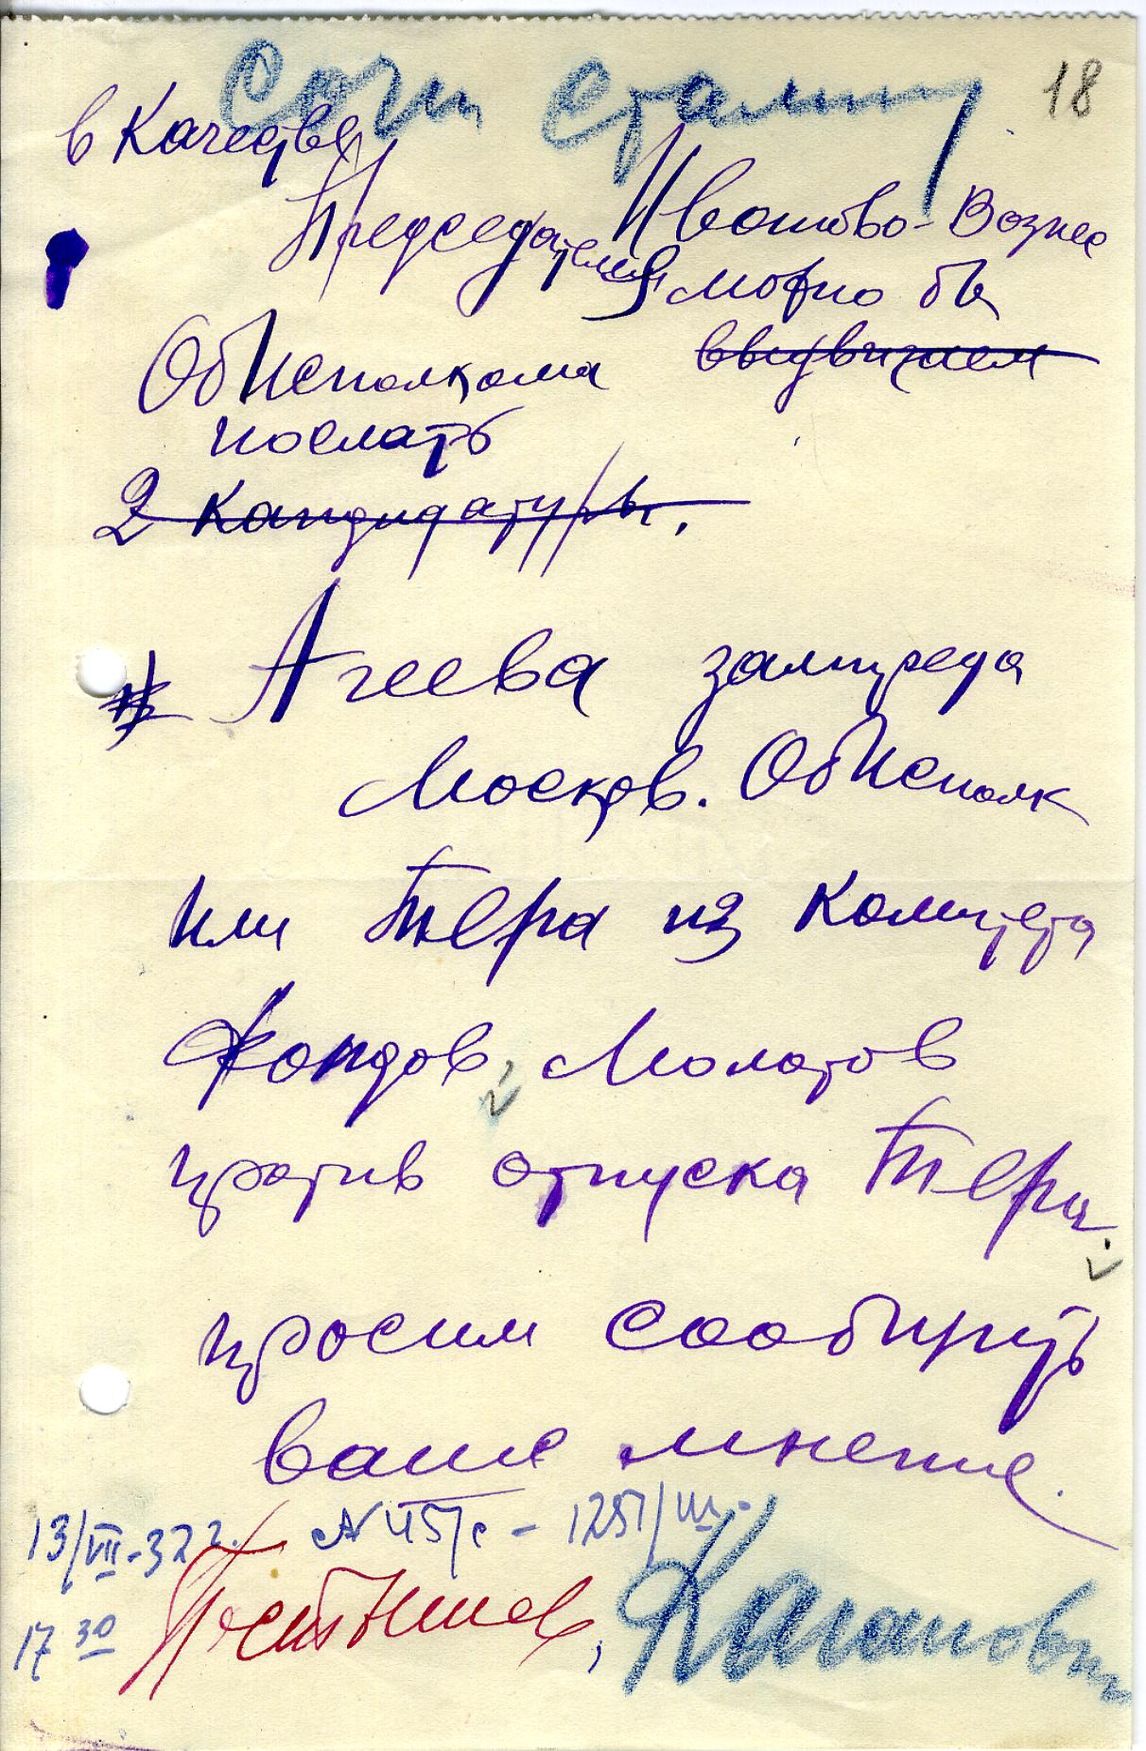 Сочи Сталину 18
в качестве
Председателя Иваново-Вознес
можно бы
ОбИсполкома выдвигаем
послать
2 кандидатуры.
Агеева зампреда
Москов. ОбИсполк
или Тера из комитета
фондов, Молотов
против отпуска Тера.
просим сообщить
ваше мнение.
13/VII-32 г. N 45/с - 1251/ш.
17 30 Постышев, Каганович